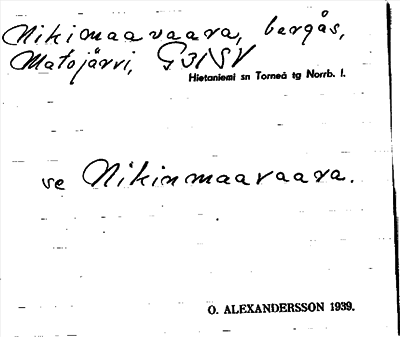 Nikimaavaara, bergås,
Matojärvi, G3NSV
Hietaniemi sn Torneå tg Norrb. l.
se Nikinmaavaara.
O. ALEXANDERSSON 1939.